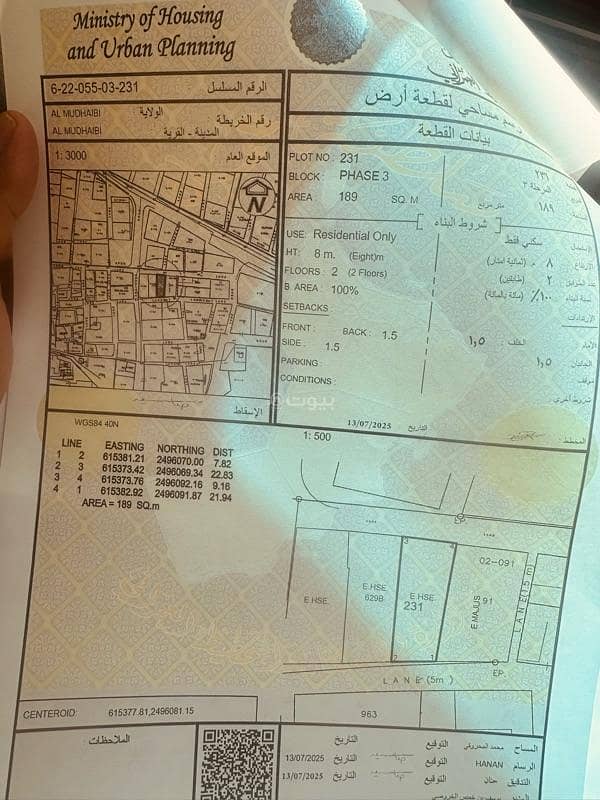 Ministry of Housing
and Urban Planning
6-22-055-03-231 الرقم المسلسل :
AL MUDHAIBI الولاية
AL MUDHAIBI رقم الخريطة المدينة - القرية
1: 3000 الموقع العام
N
الإسقاط
مساحي لقطعة أرض
بيانات القطعة
PLOT NO : 231 ٢٣١
BLOCK : PHASE 3 المرحلة ٣
AREA 189 SQ. M متر مربع ١٨٩
شروط البناء
USE: Residential Only سكني فقط
HT: 8 m. (Eight)m ٨ م. (ثمانية أمتار)
FLOORS : 2 (2 Floors) ٢ (طابقين)
B. AREA : 100% ١٠٠٪ (مائة بالمائة)
SETBACKS :
FRONT : BACK : 1.5 الخلف : ١,٥
SIDE : 1.5 ١,٥
PARKING
CONDITIONS :
13/07/2025 التاريخ
بيوت
WGS84 40N
1: 500
LINE EASTING NORTHING DIST
1 2 615381.21 2496070.00 7.82
2 3 615373.42 2496069.34 22.83
3 4 615373.76 2496092.16 9.16
4 1 615382.92 2496091.87 21.94
AREA = 189 SQ.m
EP.
3 4
02-091
E.HSE.
E.HSE.
629B
E.HSE.
231
E.MAJLIS
91
LANE(1.5 m)
2 1
EP.
LANE (5m)
CENTEROID: 615377.81,2496081.15
963
الملاحظات :
المساح محمد المحروقي التوقيع التاريخ
الرسام HANAN التوقيع التاريخ 13/07/2025
التدقيق حنان التوقيع التاريخ 13/07/2025